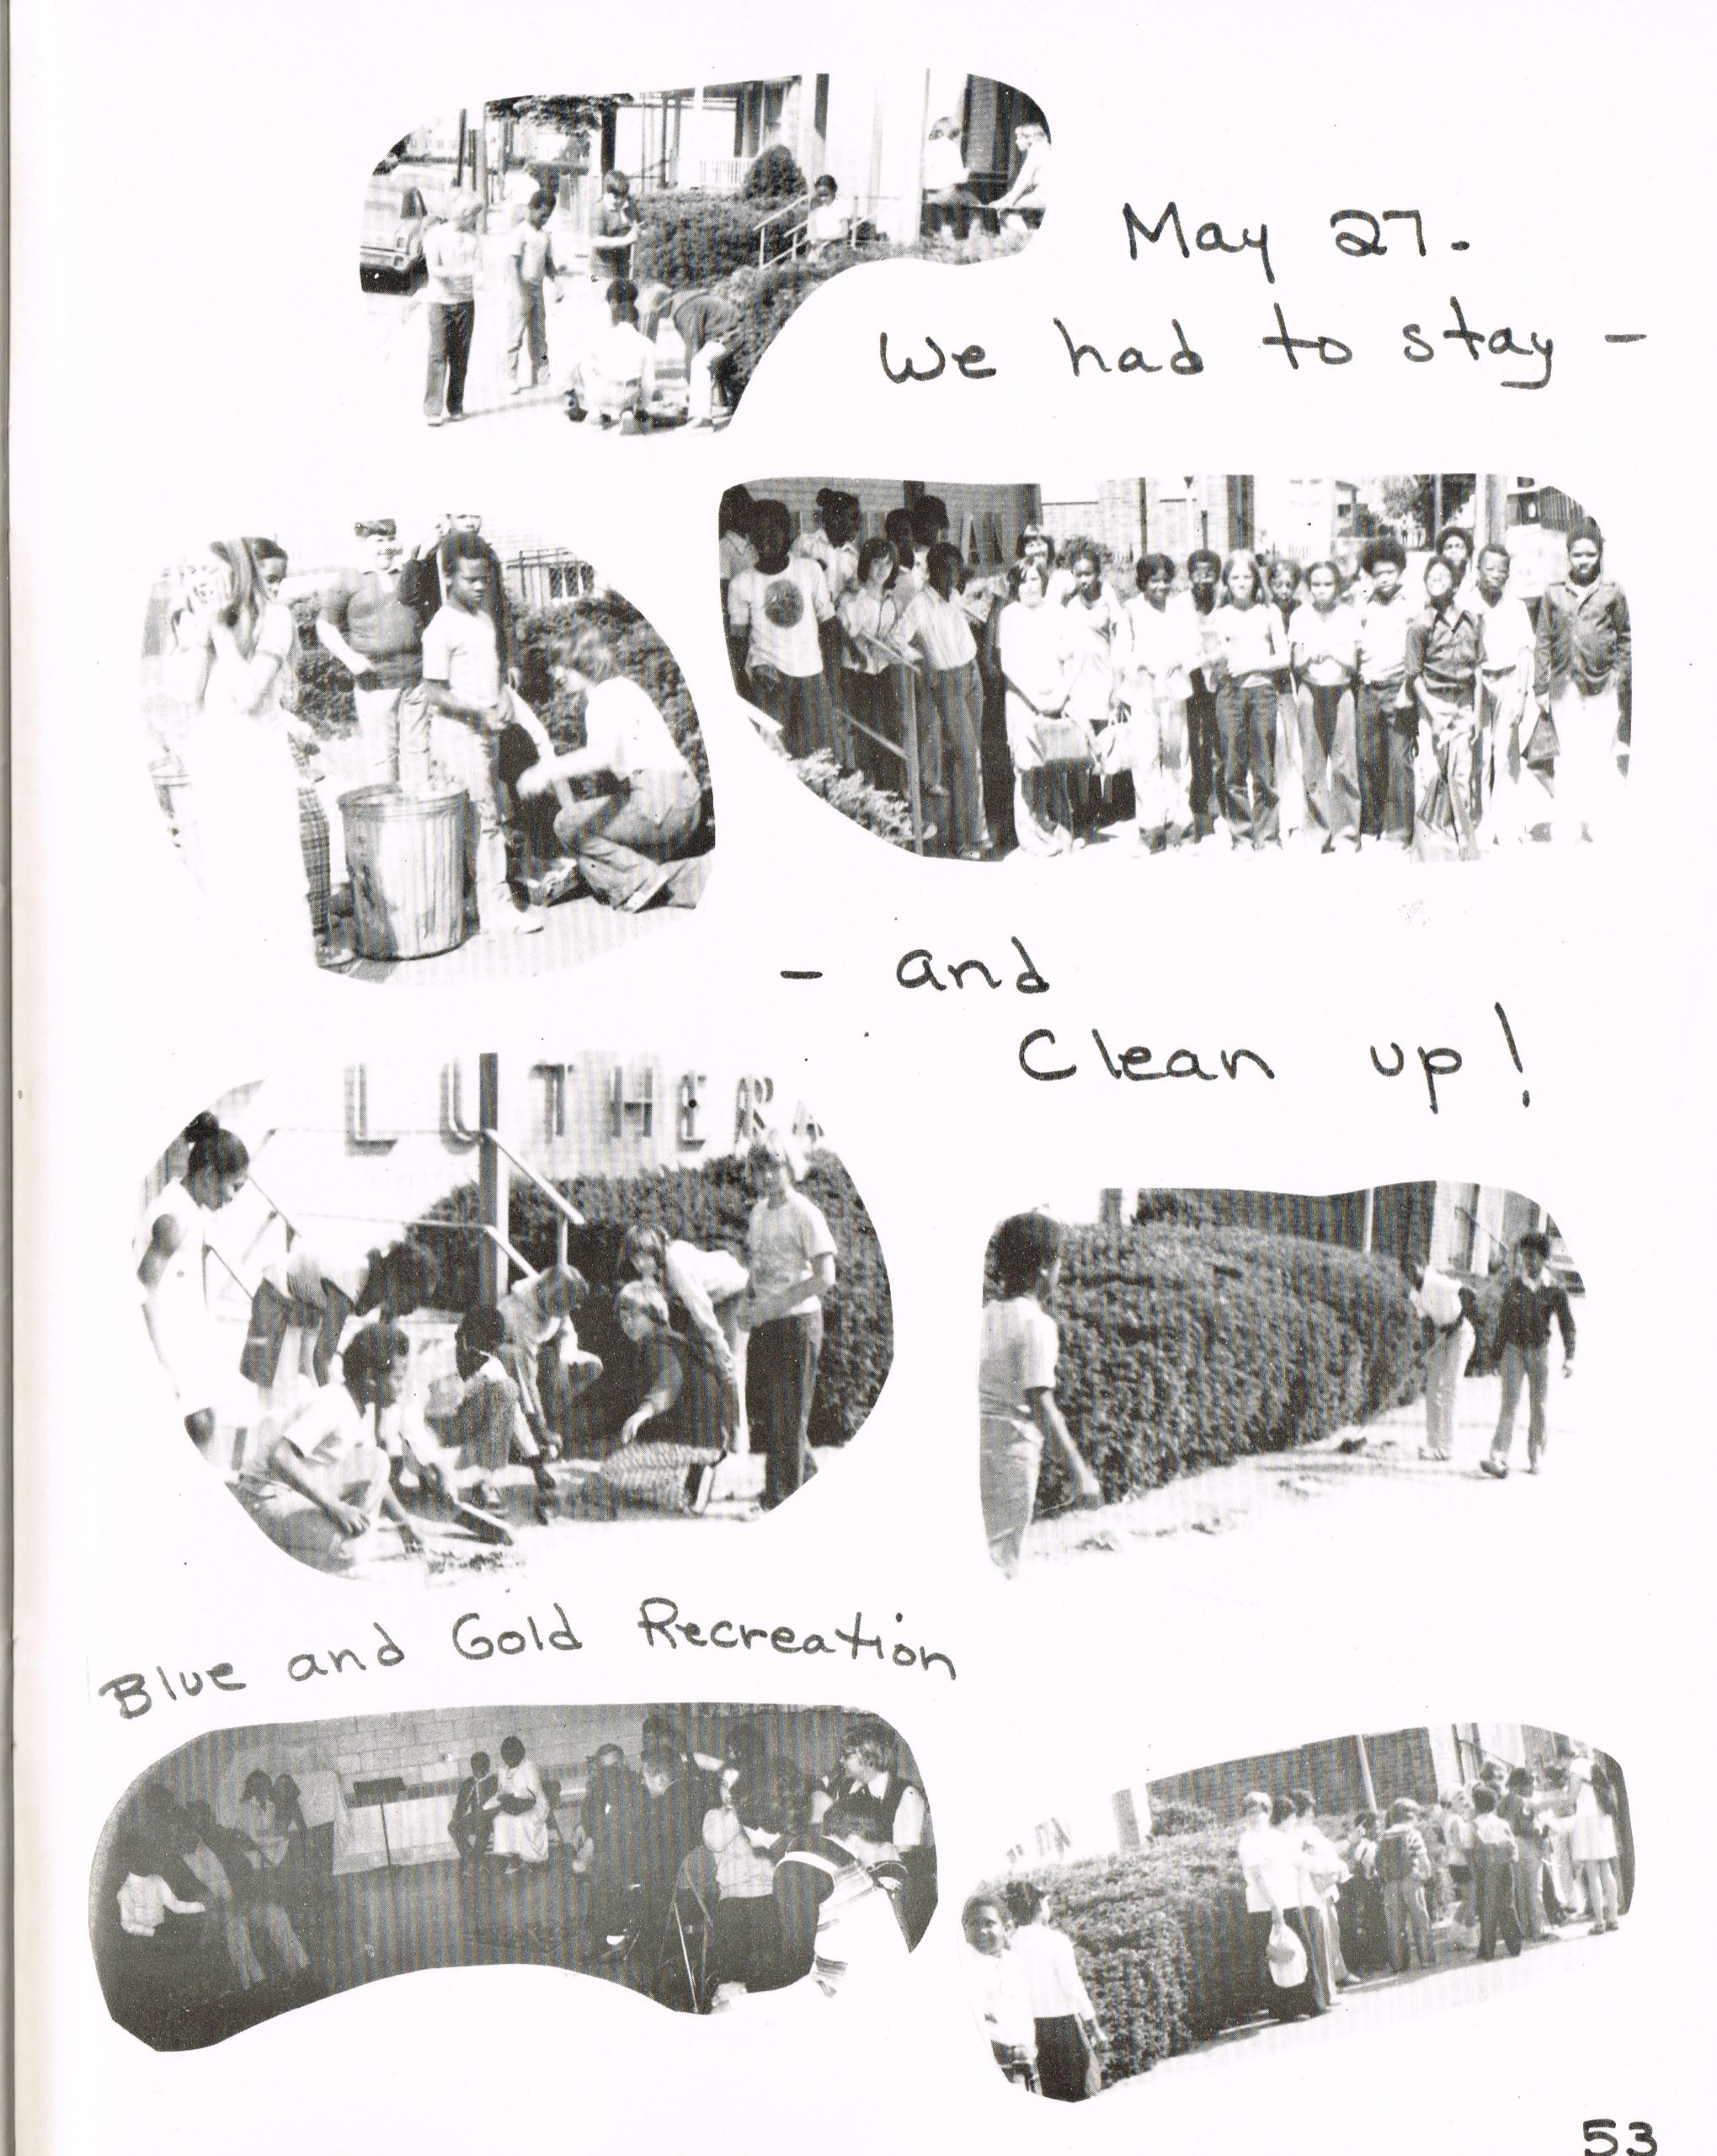 May 27.
We had to stay -
AN
- and
Clean up!
LUTHERA
Blue and Gold Recreation
53